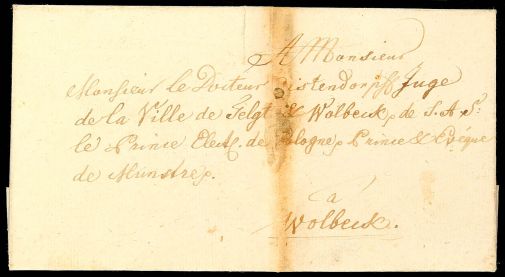 A Monsieur
Monsieur Le Docteur Juge
de la Ville de Telgt & Wolbeck de S. A. S:
le Prince Elect. de Cologne, Prince & Evêque
de Münstre.
à
Wolbeck.